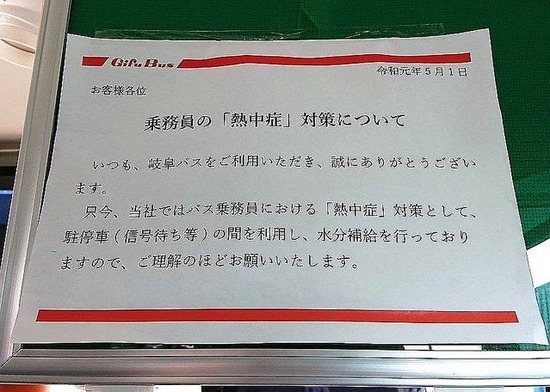 Gifu Bus
令和元年5月1日
お客様各位
乗務員の「熱中症」対策について
いつも、岐阜バスをご利用いただき、誠にありがとうござい
ます。
只今、当社ではバス乗務員における「熱中症」対策として、
駐停車(信号待ち等)の間を利用し、水分補給を行っており
ますので、ご理解のほどお願いいたします。